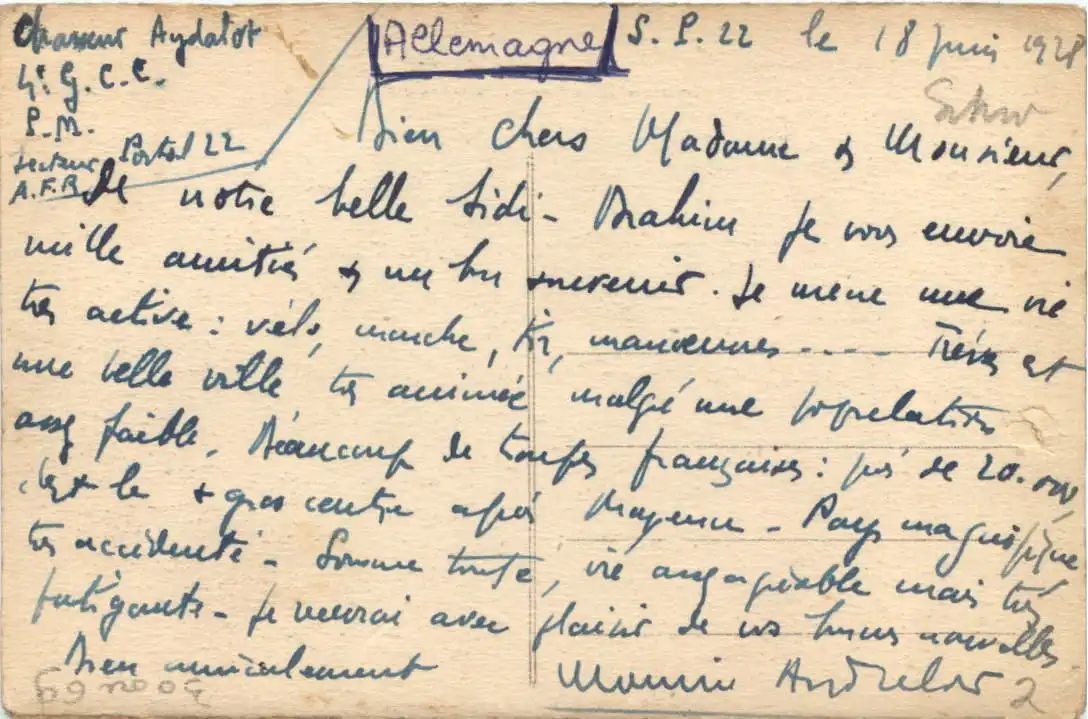 Chasseur Aydalot
4e. G. C. C.
P. M.
Secteur Postal 22
A. F. R.
Allemagne
S. P. 22 le 18 Juin 1928
Bien chers Madame & Monsieur,
De notre belle Sidi-Brahim je vous envoie
mille amitiés & un bon souvenir. Je mène une vie
très active : vélo, marche, tir, manoeuvres ---- Trèves est
une belle ville très animée malgré une population
assez faible. Beaucoup de troupes françaises : près de 20.000,
c'est le + gros centre après Mayence - Pays magnifique
très accidenté - Somme toute, vie assez agréable mais très
fatigante - Je recevrai avec plaisir de vos bonnes nouvelles
Bien amicalement
Aydalot
2